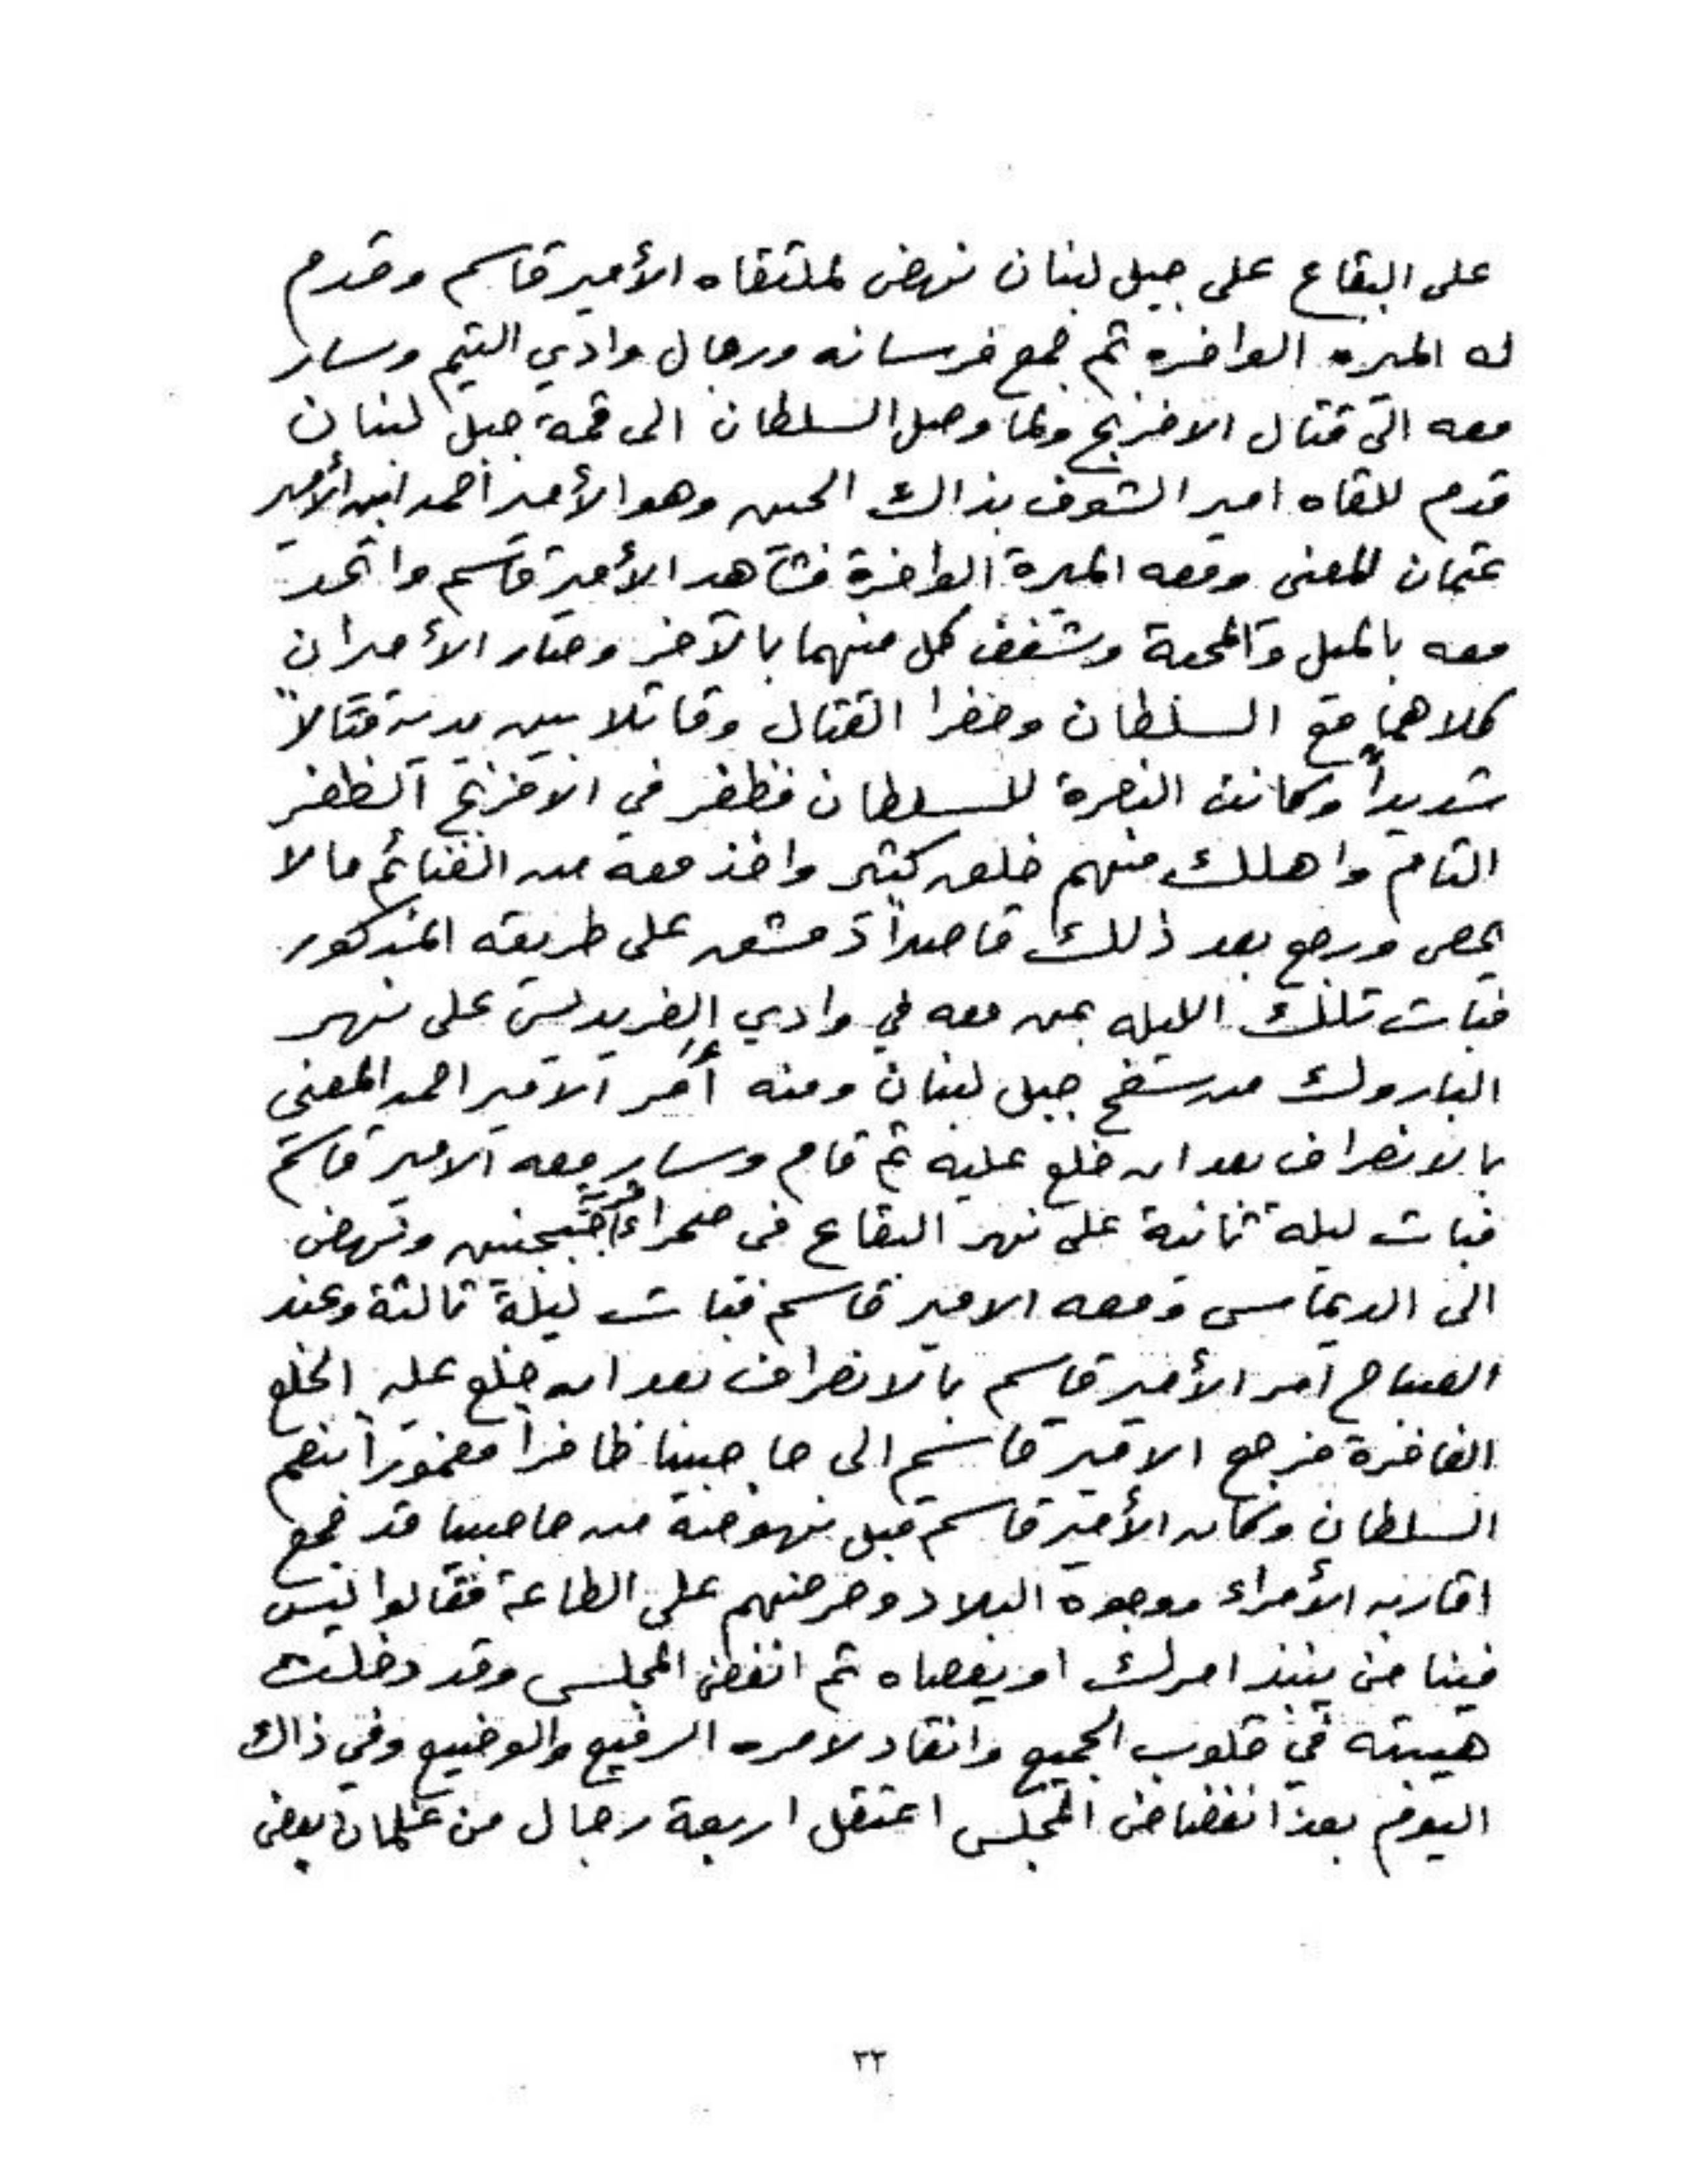 على البقاع على جبل لبنان نهض لملتقاه الأمير قاسم وقدم
له الميره الوافره ثم جمع فرسانه ورجال وادي التيم وسار
معه الى قتال الافرنج ولما وصل السلطان الى قمة جبل لبنان
قدم للقاه امير الشوف بذاك الحين وهو الأمير أحمد ابن الأمير
عثمان المعنى ومعه الميرة الوافرة فشاهد الأمير قاسم واتحد
معه بالميل والمحبة وشغف كل منهما بالآخر وصار الأميران
كلاهما مع السلطان وحضرا القتال وقاتلا بين يديه قتالاً
شديداً وكانت النصرة للسلطان فظفر في الافرنج الظفر
التام واهلك منهم خلق كثير واخذ معه من الغنائم مالا
يحصى ورجع بعد ذلك قاصداً دمشق على طريقه المذكور
فبات تلك الليله بمن معه في وادي الفريديس على نهر
الباروك من سفح جبل لبنان ومنه أمر الامير احمد المعني
بالانصراف بعد ان خلع عليه ثم قام وسار معه الامير قاسم
فبات ليلة ثانية على نهر البقاع في صحراء قرية جنين ونهض
الى الديماس ومعه الامير قاسم فبات ليلة ثالثة وعند
الصباح امر الأمير قاسم بالانصراف بعد ان خلع عليه الخلع
الفاخرة فرجع الامير قاسم الى حاصبيا ظافراً مغموراً بنعم
السلطان وكان الأمير قاسم قبل نهوضه من حاصبيا قد جمع
اقاربه الأمراء ووجوه البلاد وحرضهم على الطاعة فقالوا ليس
فينا من ينبذ امرك او يعصاه ثم انفض المجلس وقد دخلت
هيبته في قلوب الجميع وانقاد لامره الرفيع والوضيع وفي ذاك
اليوم بعد انفضاض المجلس اعتقل اربعة رجال من غلمان بعض
٣٣